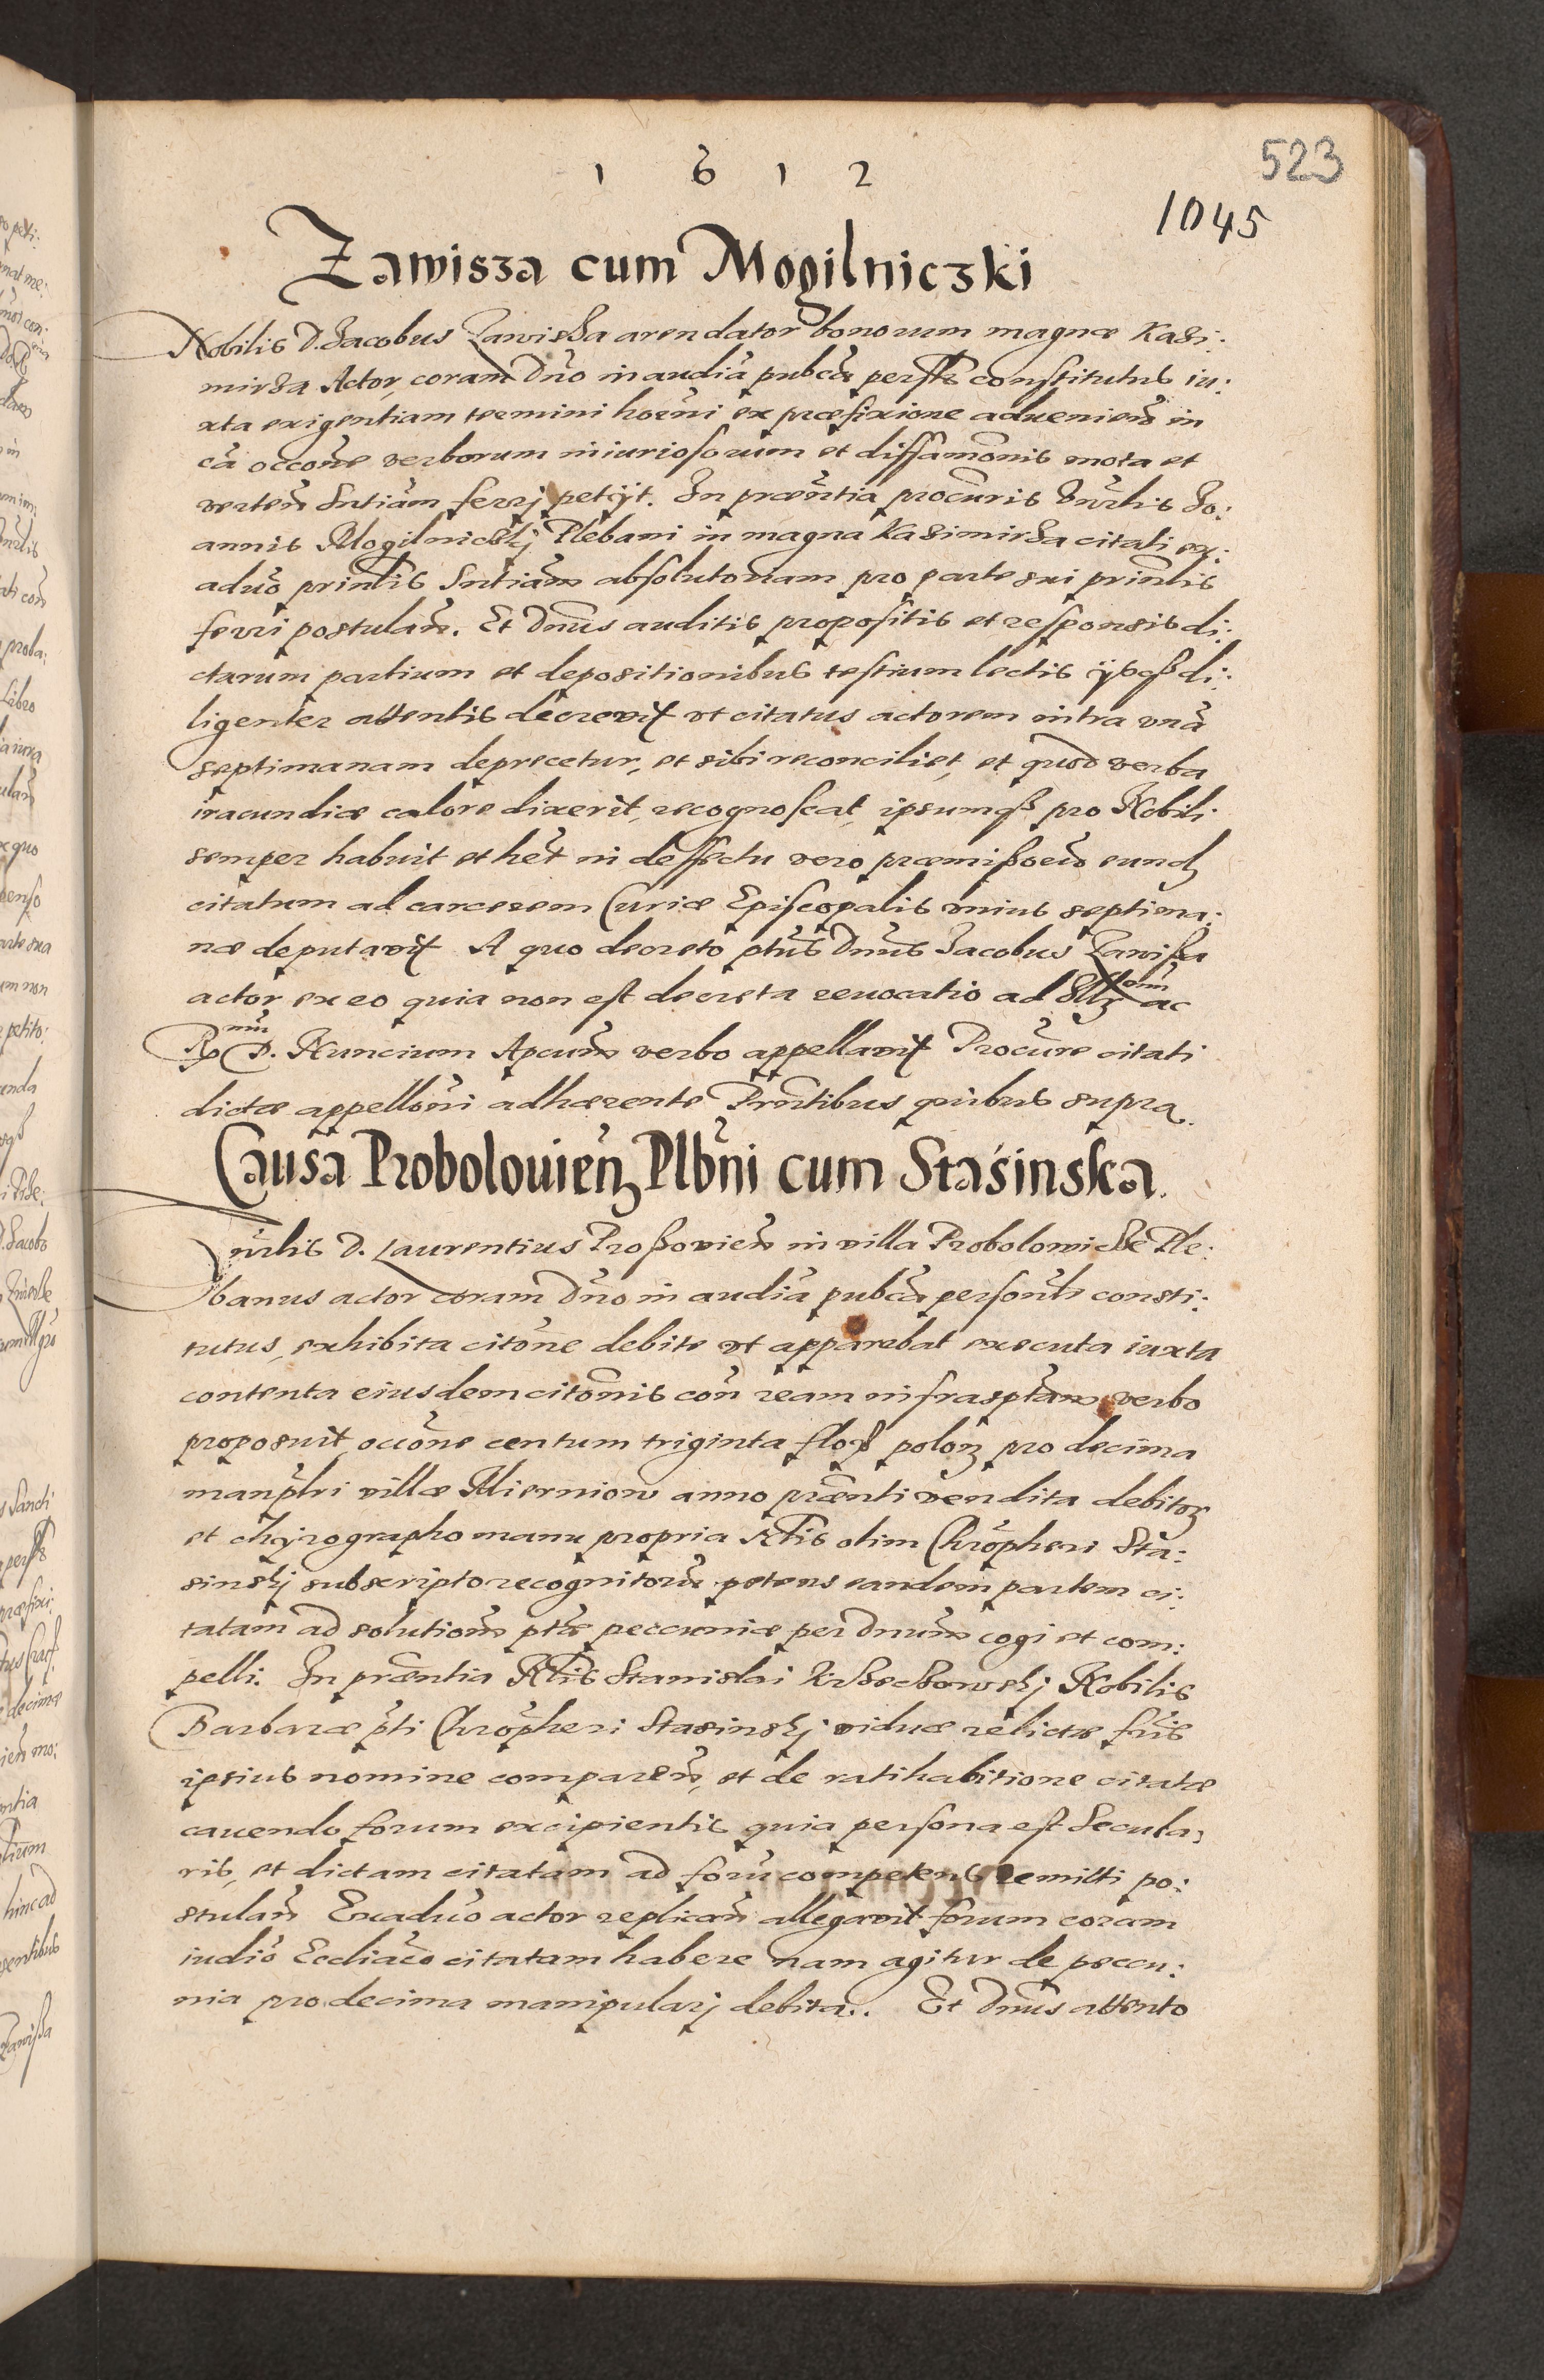 1612
523
1045
Zawisza cum Mogilniczki
Nobilis D. Jacobus Zawisza arendator bonorum magnæ Kazi:
mirza Actor, coram Dno in audiã pubca persõlr constitutus iu:
xta exigentiam termini hoẽrni ex præfixione adueniẽn in
cã occõne verborum iniuriosorum et diffamõnis mota et
vertẽn Sntiãm ferrj petijt. In præñtia procũris Vñrlis Jo:
annis Mogilniczkj Plebani in magna Kazimirza citati ex:
aduõ prinlis Sntiãm absolutoriam pro parte sui prinlis
ferri postulañ. Et Dñus auditis propositis et responsis di:
ctarum partium et depositionibus testium lectis ÿsqȝ di:
ligenter attentis decrevit vt citatus actorem intra vnã
septimanam deprecetur, et sibi reconciliet, et quod verba
iracundiæ calore dixerit, recognoscat, ipsumqȝ pro Nobili
semper habuit et hẽt in deffectu vero præmissoru eundȝ
citatum ad carcerem Curiæ Episcopalis vnius septima:
næ deputavit A quo decreto ptũs Dnũs Jacobus Zawisza
actor ex eo quia non est decreta reuocatio ad Illȝ ac
R D. Nuncium Apcum verbo appellavit Procure citati
dictæ appellõni adhærente Prñtibus quibus supra.
Causa Probolouieñȝ Plbni cum Stasinska.
Vñrlis D. Laurentius Proßovieñ in villa Probolowicze Ple:
banus actor coram Dño in audiã pubca personlr consti:
tutus, exhibita citõne debite vt apparebat executa iuxta
contenta eiusdem citõnis coñ ream infrasptam verbo
proposuit, occõne centum triginta floȝ polonȝ pro decima
manplri villæ Mierniow anno præñti vendita debitoȝ
et chyrographo manu propria Nlis olim Chrõpheri Sta:
sinskj subscripto recognitoru petens eandem partem ci:
tatam ad solutionem ptæ pecuniæ per Dnum cogi et com:
pelli. In præñtia Nlis Stanislai Krzeczowskj Nobilis
Barbaræ pti Chrõpheri Stasinskj viduæ relictæ fris
ipsius nomine comparẽn, et de ratihabitione citatæ
cauendo forum excipientis quia persona est Secula,
ris, et dictam citatam ad forũ competens remitti po:
stulañ Exaduõ actor replicañ allegavit forum coram
iudiõ Ecclíacõ citatam habere nam agitur de pecu:
nia pro decima manipularj debita. Et Dnus attento